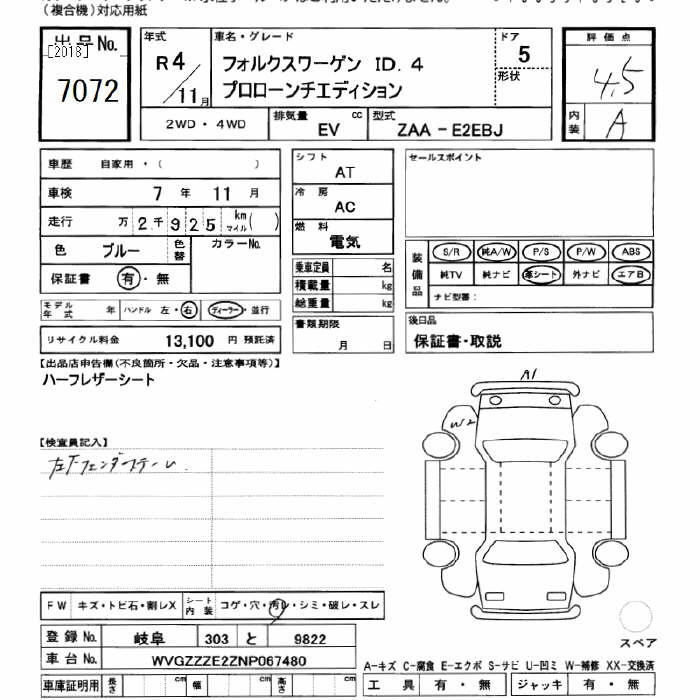 (複合機)対応用紙
出品No.
[2018]
7072
年式
R4/11月
車名・グレード
フォルクスワーゲン ID.4
プロローンチエディション
ドア
5
形状
評価点
4.5
内装
A
2WD・4WD
排気量
EV
cc
型式
ZAA-E2EBJ
車歴 自家用・( )
車検 7年 11月
走行 万2千925 km マイル( )
色 ブルー 色替 カラーNo.
保証書 有・無
モデル年式 年 ハンドル 左・右 ディーラー・並行
リサイクル料金 13,100 円 預託済
シフト
AT
冷房
AC
燃料
電気
乗車定員 名
積載量 kg
総重量 kg
書類期限
月 日
セールスポイント
装備品
S/R 純A/W P/S P/W ABS
純TV 純ナビ 革シート 外ナビ エアB
ナビ型番:
後日品
保証書・取説
【出品店申告欄(不良箇所・欠品・注意事項等)】
ハーフレザーシート
【検査員記入】
A1
W2
FW キズ・トビ石・割レX シート内装 コゲ・穴・汚レ・シミ・破レ・スレ
登録No. 岐阜 303 と 9822
車台No. WVGZZZE2ZNP067480
車庫証明用 長さ cm 幅 cm 高さ cm
スペア
A-キズ C-腐食 E-エクボ S-サビ U-凹ミ W-補修 XX-交換済
工具 有・無 ジャッキ 有・無